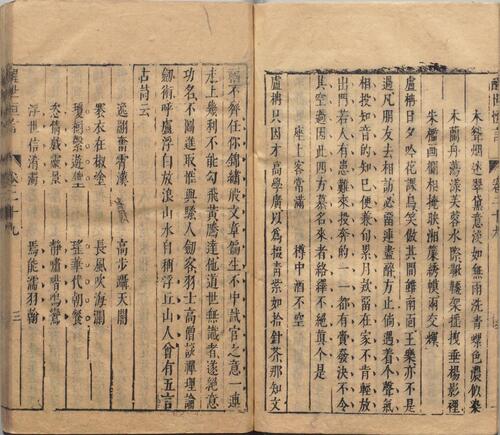 醒世恒言
木聳烟迷翠黛意淡如無雨洗青螺色濃似染
木蘭舟蕩漾芙蓉水際鞦韆架搖拽垂楊影裡
朱檻畫欄相掩映湘簾綉幙兩交輝
盧柟日夕吟花課鳥笑傲其間雖南面王樂亦不是
過凡朋友去相訪必留連盡醉方止倘遇着个聲氣
相投知音的知已便兼旬累月款留在家不肯輕放
出門若人有患難來投奔的一一都有賫發決不令
其空過因此四方慕名來者絡繹不絕真个是
座上客常滿　樽中酒不空
盧柟只因才高學廣以爲掇青紫如拾針芥那知文
福不齊任你錦繡般文章偏生不中試官之意一連
走上幾利不能勾飛黃騰達他道世無識者遂絕意
功名不圖進取惟與騷人劍客羽士高僧談禪理論
劍術呼盧浮白放浪山水自稱浮丘山人曾有五言
古詩云
逸翮奮霄漢　高步躡天關
褰衣在椒塗　長風吹海瀾
瓊樹繫遊鑣　瑤華代朝餐
恣情戲靈景　靜嘯喈鳴鸞
浮世信淆濁　焉能濡羽翰
醒世恒言　卷二十九　三